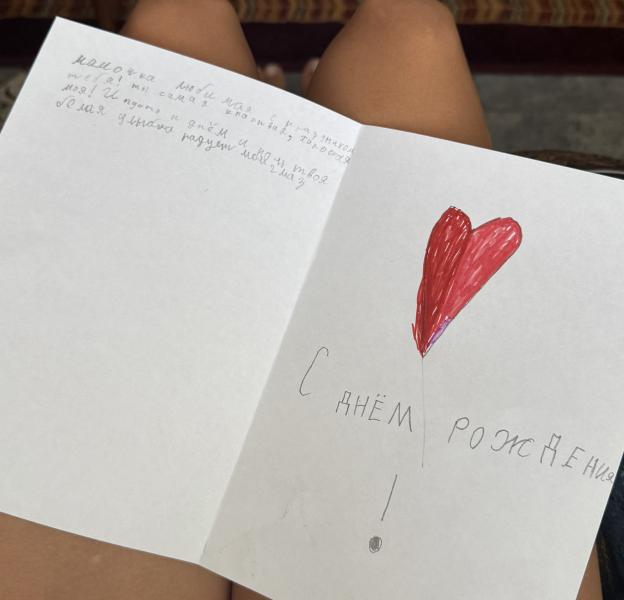 мамочка любимая с праздником
тебя! ты самая красивая, хорошая
моя! И пусть и днём и ночью твоя
белая улыбка радует мой глаз
С ДНЁМ РОЖДЕНИЯ
!